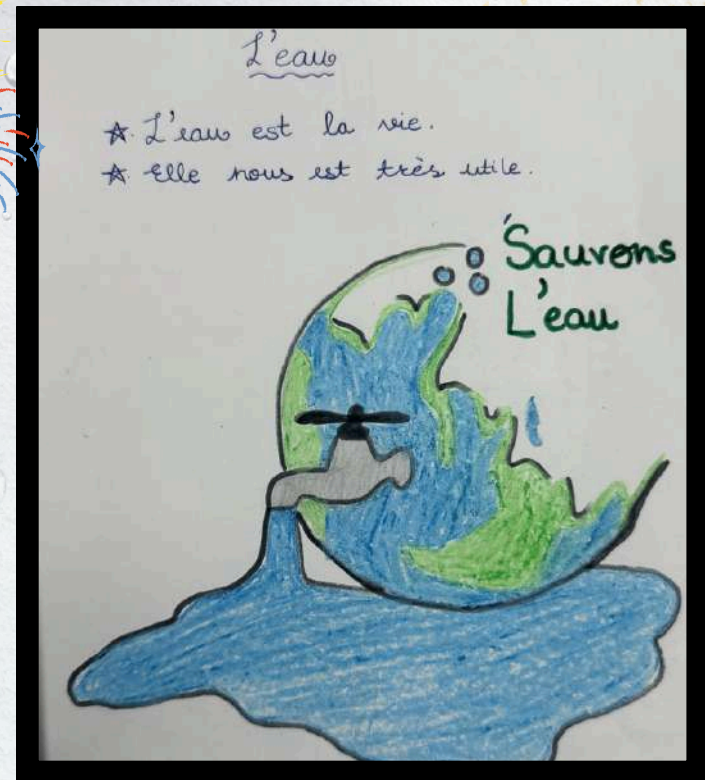 L'eau
☆ L'eau est la vie.
☆ Elle nous est très utile.
Sauvons
L'eau